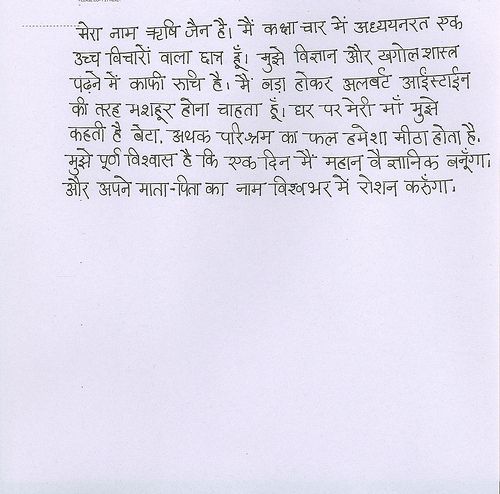 मेरा नाम ऋषि जैन है। मैं कक्षा चार में अध्ययनरत एक
उच्च विचारों वाला छात्र हूँ। मुझे विज्ञान और खगोलशास्त्र
पढ़ने में काफी रुचि है। मैं बड़ा होकर अलबर्ट आईस्टाईन
की तरह मशहूर होना चाहता हूँ। घर पर मेरी माँ मुझे
कहती है बेटा, अथक परिश्रम का फल हमेशा मीठा होता है,
मुझे पूर्ण विश्वास है कि एक दिन मैं महान वैज्ञानिक बनूँगा,
और अपने माता-पिता का नाम विश्वभर में रोशन करुँगा,